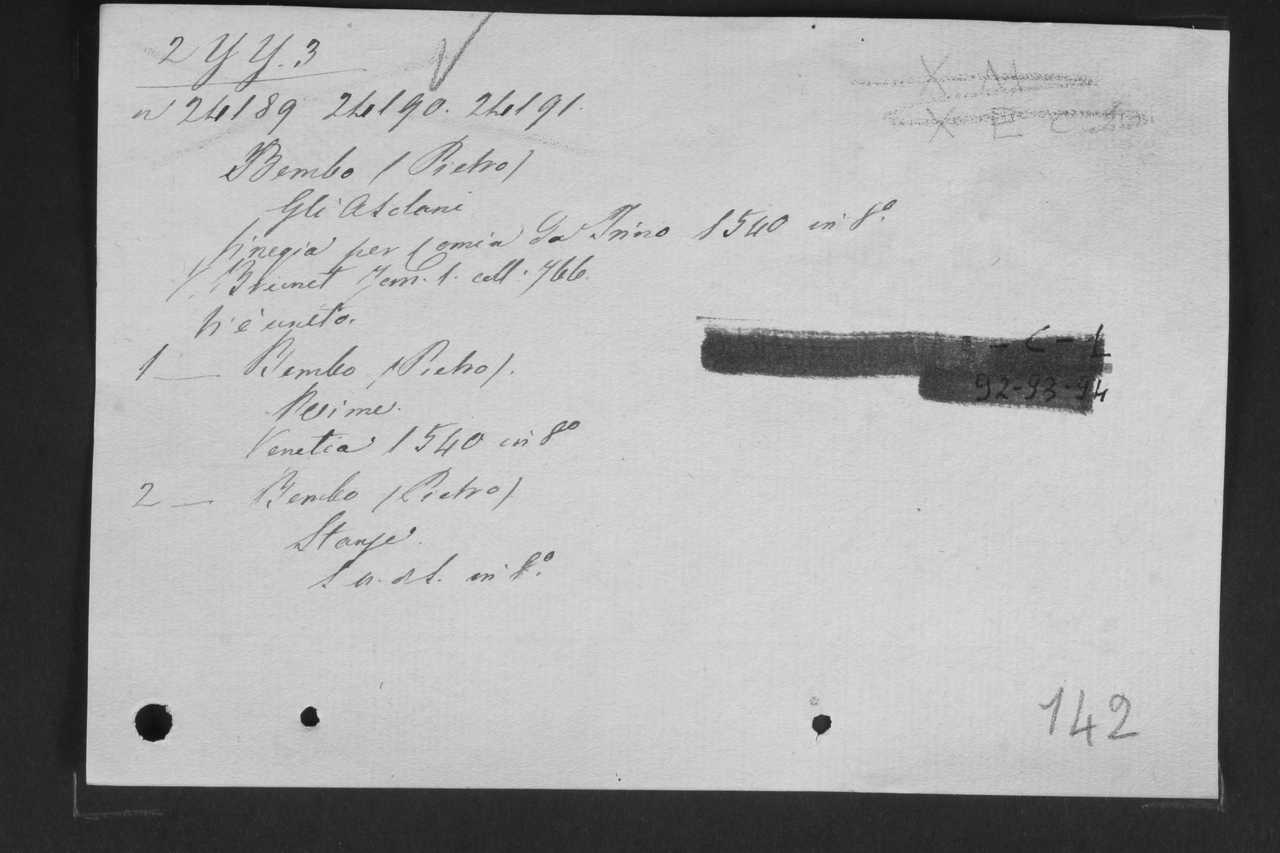 2 Y Y. 3
n 24189 24190. 24191.
Bembo (Pietro)
Gli Asolani
Vinegia per Comin da Trino 1540 in 8º.
V. Brunet Tom. 1. coll. 766.
Vi è unito.
1 — Bembo (Pietro).
Rime.
Venetia 1540 in 8º
2 — Bembo (Pietro)
Stanze.
s. a. et l. in 8º.
- C - L
92-93-94
142